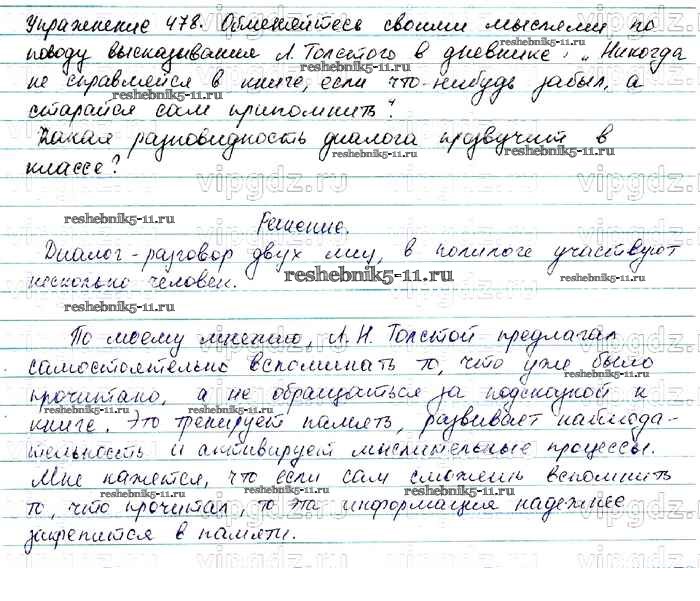 Упражнение 478. Обменяйтесь своими мыслями по
поводу высказывания Л. Толстого в дневнике: „Никогда
не справляйся в книге, если что-нибудь забыл, а
старайся сам припомнить".
Какая разновидность диалога прозвучит в
классе?
Решение.
Диалог - разговор двух лиц, в полилоге участвуют
несколько человек.
По моему мнению, Л. Н. Толстой предлагал
самостоятельно вспоминать то, что уже было
прочитано, а не обращаться за подсказкой к
книге. Это тренирует память, развивает наблюда-
тельность и активирует мыслительные процессы.
Мне кажется, что если сам сможешь вспомнить
то, что прочитал, то эта информация надежнее
закрепится в памяти.
reshebnik5-11.ru
vipgdz.ru